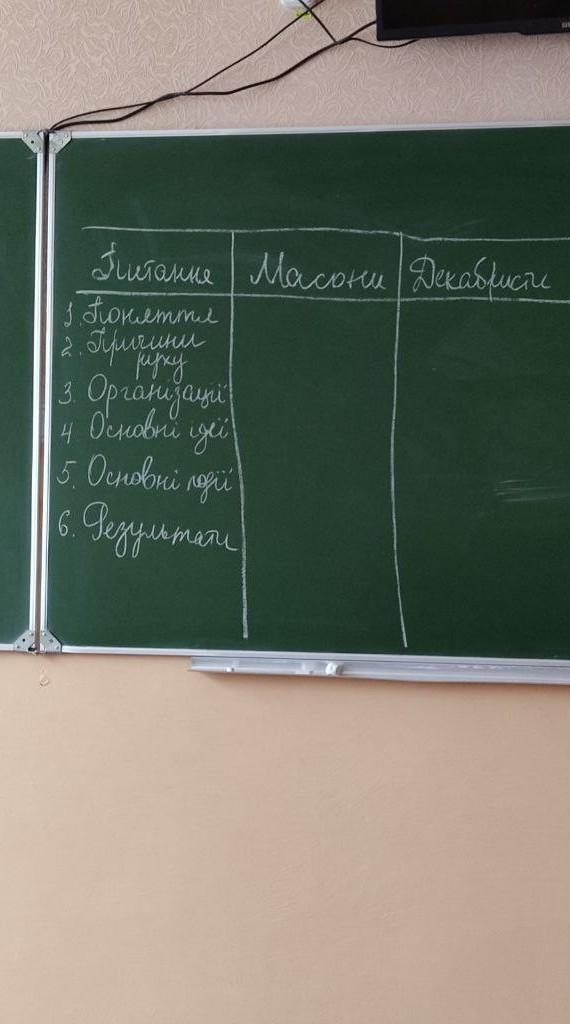 Питання Масони Декабристи
1. Поняття
2. Причини
руху
3. Організації
4 Основні ідеї
5. Основні події
6. Результати